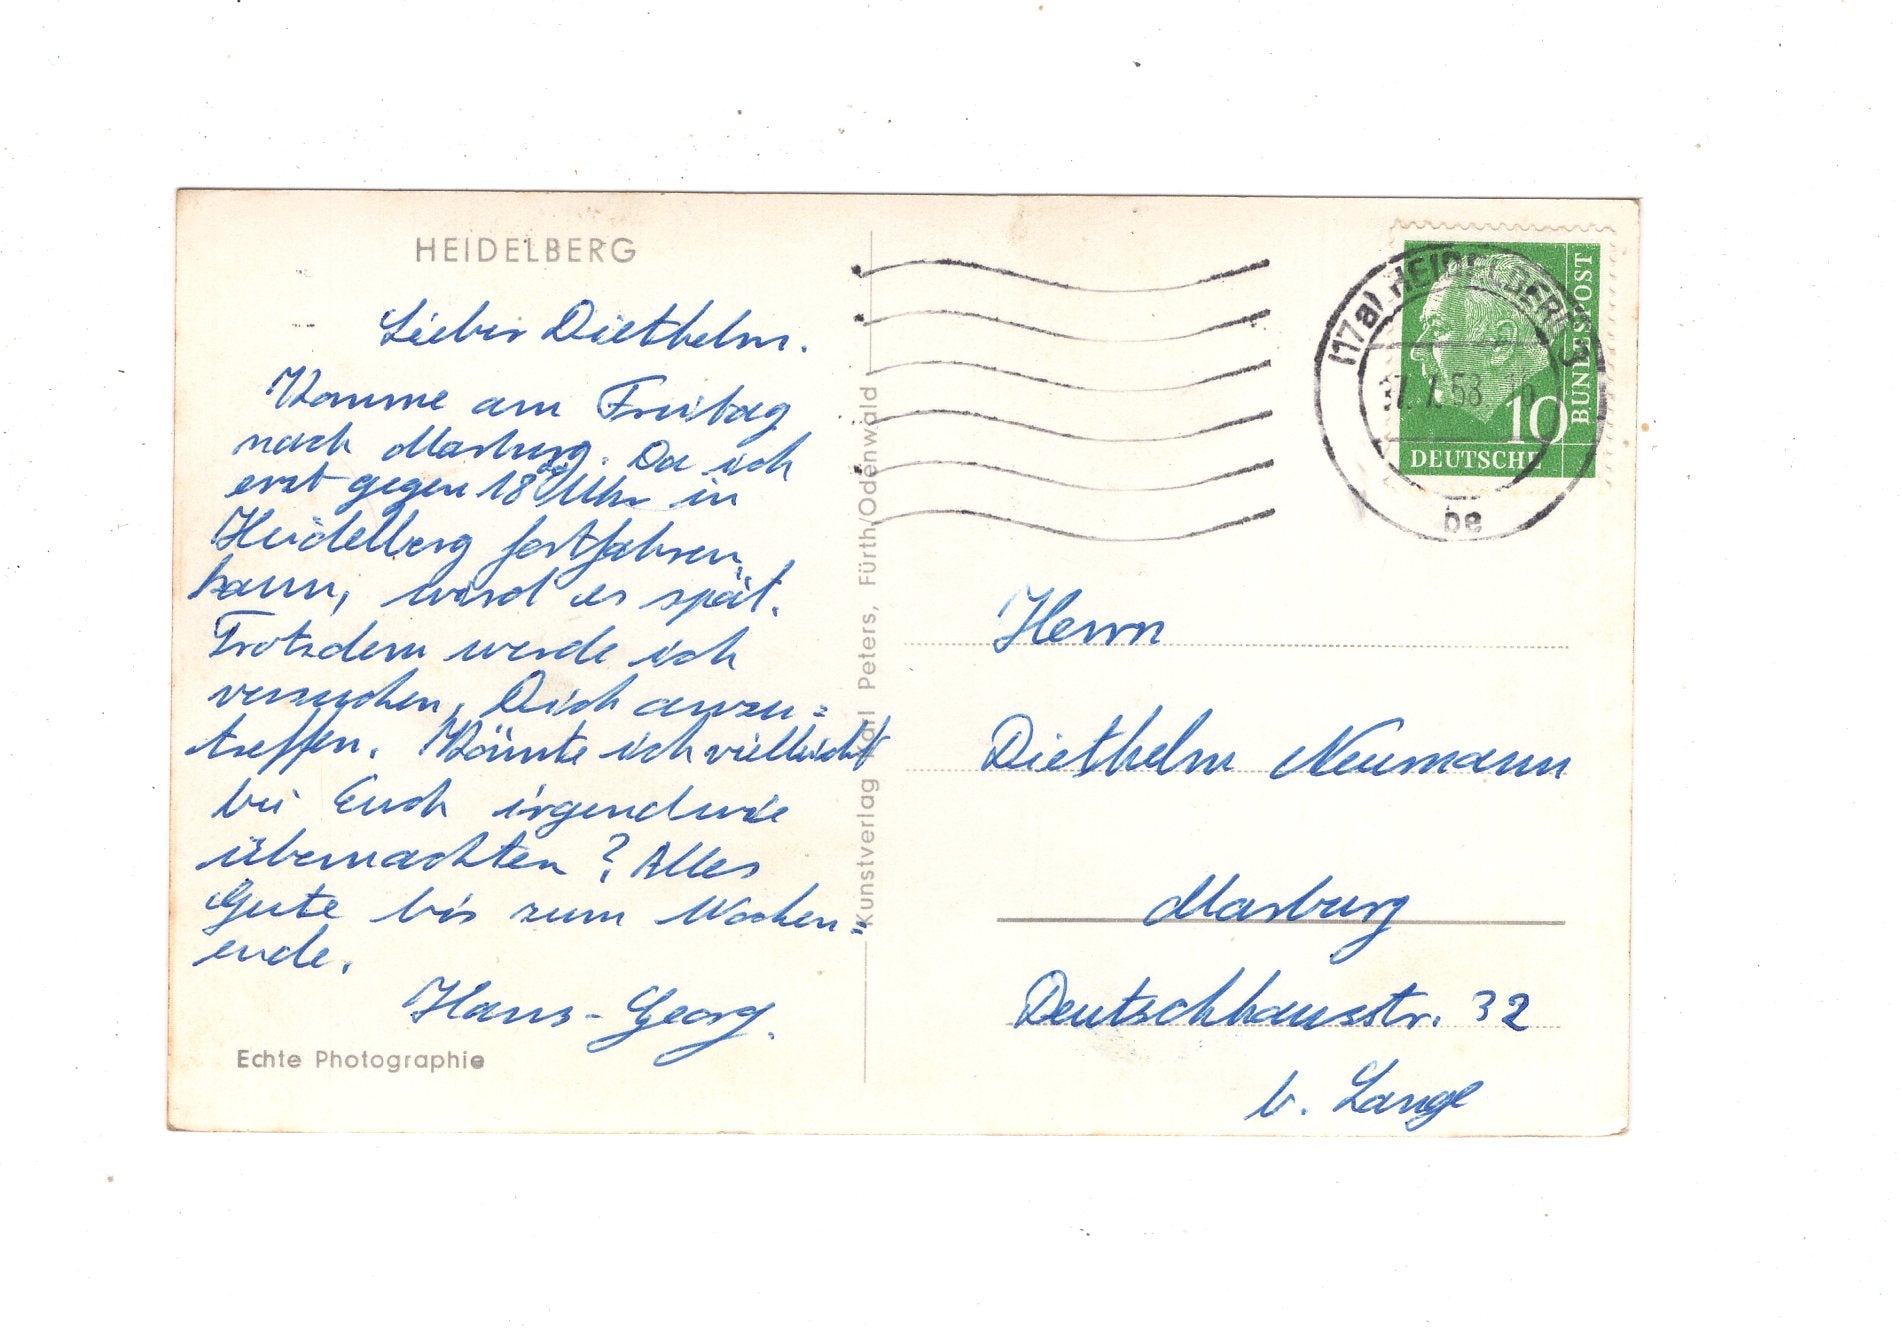 HEIDELBERG
Lieber Diethelm.
Komme am Freitag
nach Marburg. Da ich
erst gegen 18⁰⁰ Uhr in
Heidelberg fortfahren
kann, wird es spät.
Trotzdem werde ich
versuchen, Dich anzu=
treffen. Könnte ich vielleicht
bei Euch irgendwie
übernachten? Alles
Gute bis zum Wochen=
ende.
Hans-Georg.
Echte Photographie
Kunstverlag Karl Peters, Fürth/Odenwald
(17a) HEIDELBERG
58
be
10
DEUTSCHE
BUNDESPOST
Herrn
Diethelm Neumann
Marburg
Deutschhausstr. 32
b. Lange